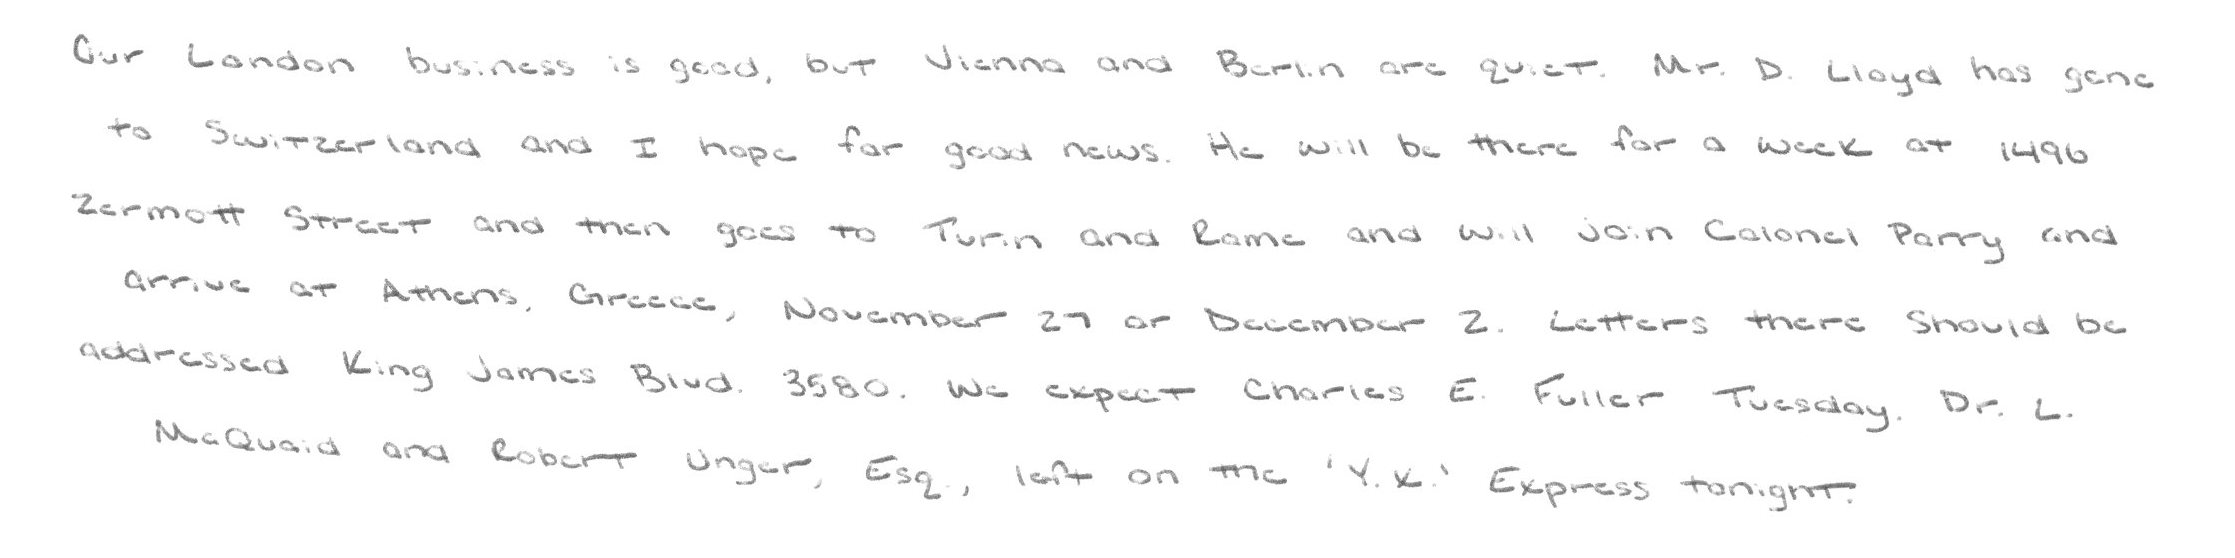 Our London business is good, but Vienna and Berlin are quiet. Mr. D. Lloyd has gone
to Switzerland and I hope for good news. He will be there for a week at 1496
Zermott Street and then goes to Turin and Rome and will join Colonel Parry and
arrive at Athens, Greece, November 27 or December 2. Letters there should be
addressed King James Blvd. 3580. We expect Charles E. Fuller Tuesday. Dr. L.
McQuaid and Robert Unger, Esq., left on the 'Y.X.' Express tonight.